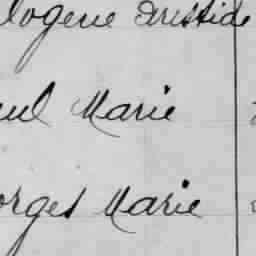 logene Aristide
eul Marie
orges Marie